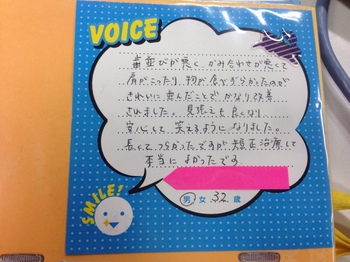 VOICE
歯並びが悪く、かみ合わせが悪くて
肩がこったり、物が食べづらかったのが
きれいに並んだことでかなり改善
されました。見顔も良くなり
安心して、笑えるようになりました。
長くて、つらかったですが矯正治療して
本当によかったです
SMILE!
男 女 32 歳